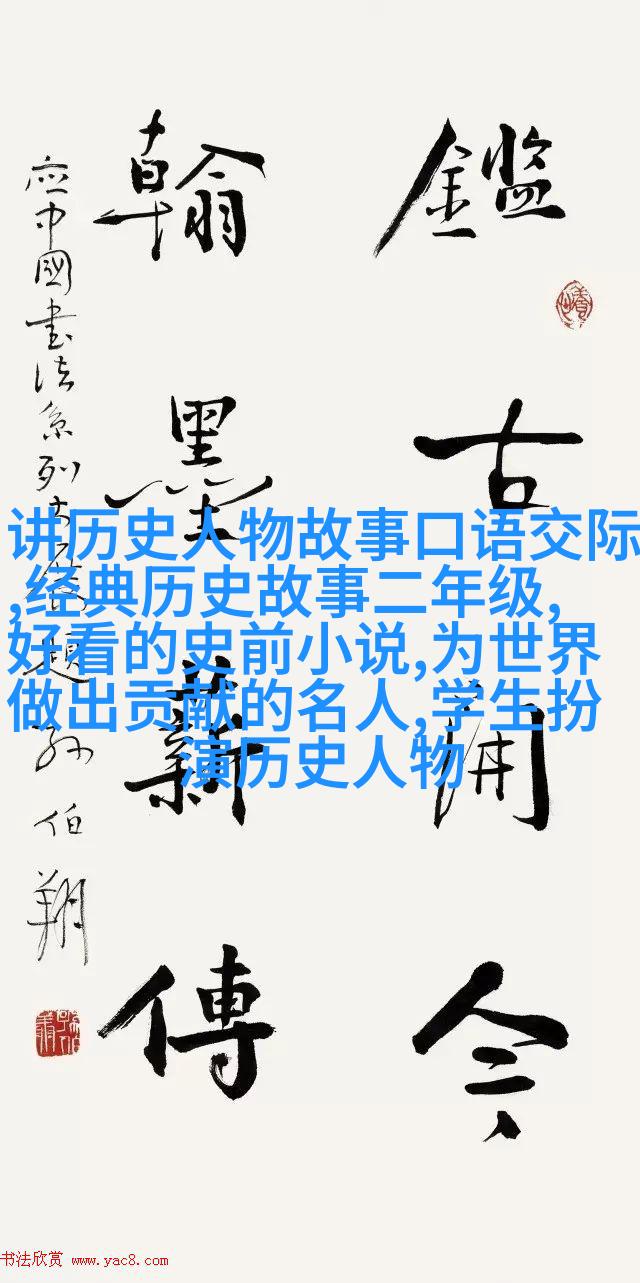 鑑古開今
翰墨薪傳
应中國書法系列大展題 孙伯翔
讲历史人物故事口语交际
,经典历史故事二年级,
好看的史前小说,为世界
做出贡献的名人,学生扮
演历史人物
书法欣赏 www.yac8.com